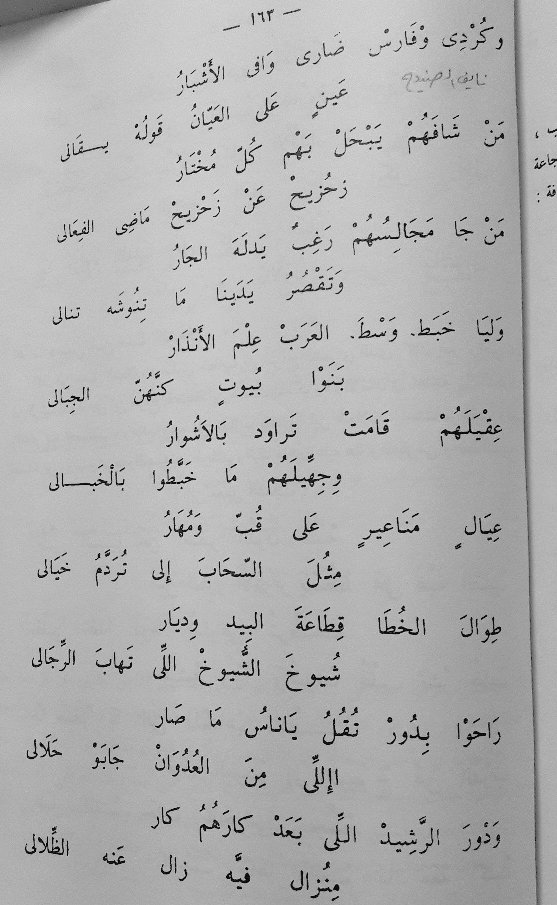 — ١٦٣ —
وكُرْدِى وْفَارسْ ضَارى وَافى الأَشْبَارُ
نايف
عَينٍ عَلى العَيّانُ قَولُهْ يــقَالى
مَنْ شَافَهُمْ يَبْحَلْ بَهْم كُلّ مُخْتَارُ
زحُزيحْ عَنْ زَحْزيحْ مَاضِى الفِعَالى
مَنْ جَا مَجَالِسُهُمْ رَغِبٌ يَدلَهَ الجَارُ
وَتَقْصُرُ يَدَينَا مَا تِنُوشَه تنالى
وَليَا خَبَط. وَسْطَ. العَرَبْ عِلْمَ الأَنْذَارْ
بَنَوْا بُيوتٍ كنَّهُنّ الجِبَالى
عِقْيَلَهُمْ قَامَتْ تَراوَد بَالاَشُوارُ
وِجِهِّيلَهُمْ مَا خَبَّطُوا بَالْخَبــالى
عِيَالٍ مَنَاعِيرٍ عَلى قُبّ وَمُهَارُ
مِثْلَ السّحَابَ إلى تُرَدَّمُ خَيَالى
طِوَالَ الخُطَا قِطَاعَةَ البِيد وِديَار
شُيوخَ الشُّيوخْ اللِّى تَهابَ الرِّجَالى
رَاحَوْا بِدُورْ نُقُلُ يَاناسُ مَا صَار
االِلِّى مِنَ العُدُوَانْ جَابَوْ حَلَالى
وَدْورَ الرَّشِيدْ اللِّى بَعَدْ كارَهُمُ كار
مِنُزال فيَّه زال عَنه الظِّلالى
ب ،
جاعة
فة :